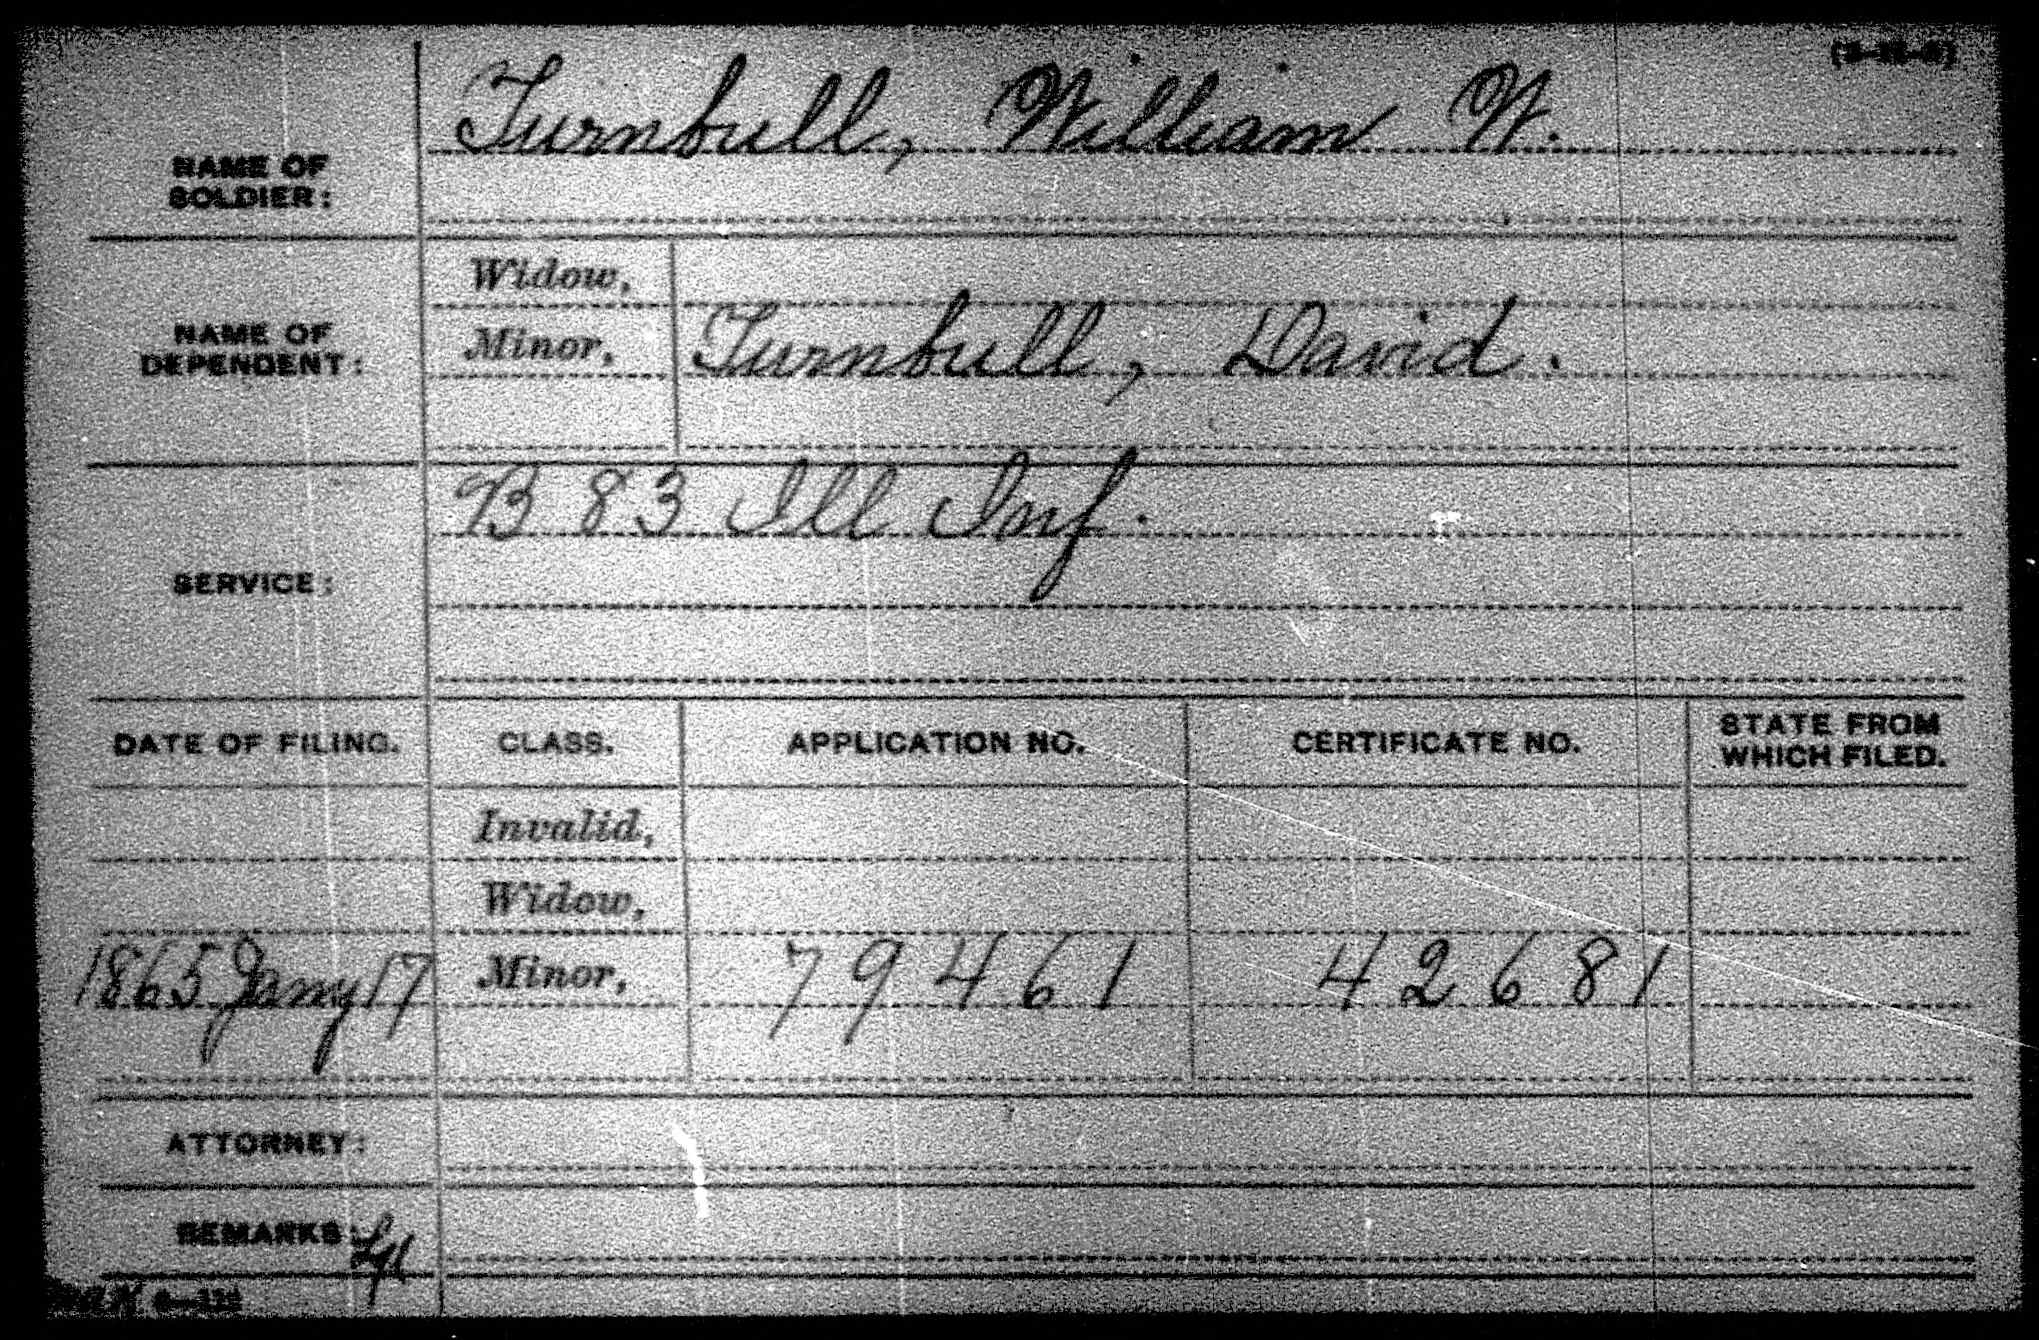 Turnbull, William W.
NAME OF
SOLDIER:
Widow,
NAME OF
DEPENDENT:
Minor, Turnbull, David.
B 83 Ill Inf.
SERVICE:
DATE OF FILING. CLASS. APPLICATION NO. CERTIFICATE NO. STATE FROM
WHICH FILED.
Invalid,
Widow,
1865 Jany 17 Minor, 79461 42681
ATTORNEY:
REMARKS: